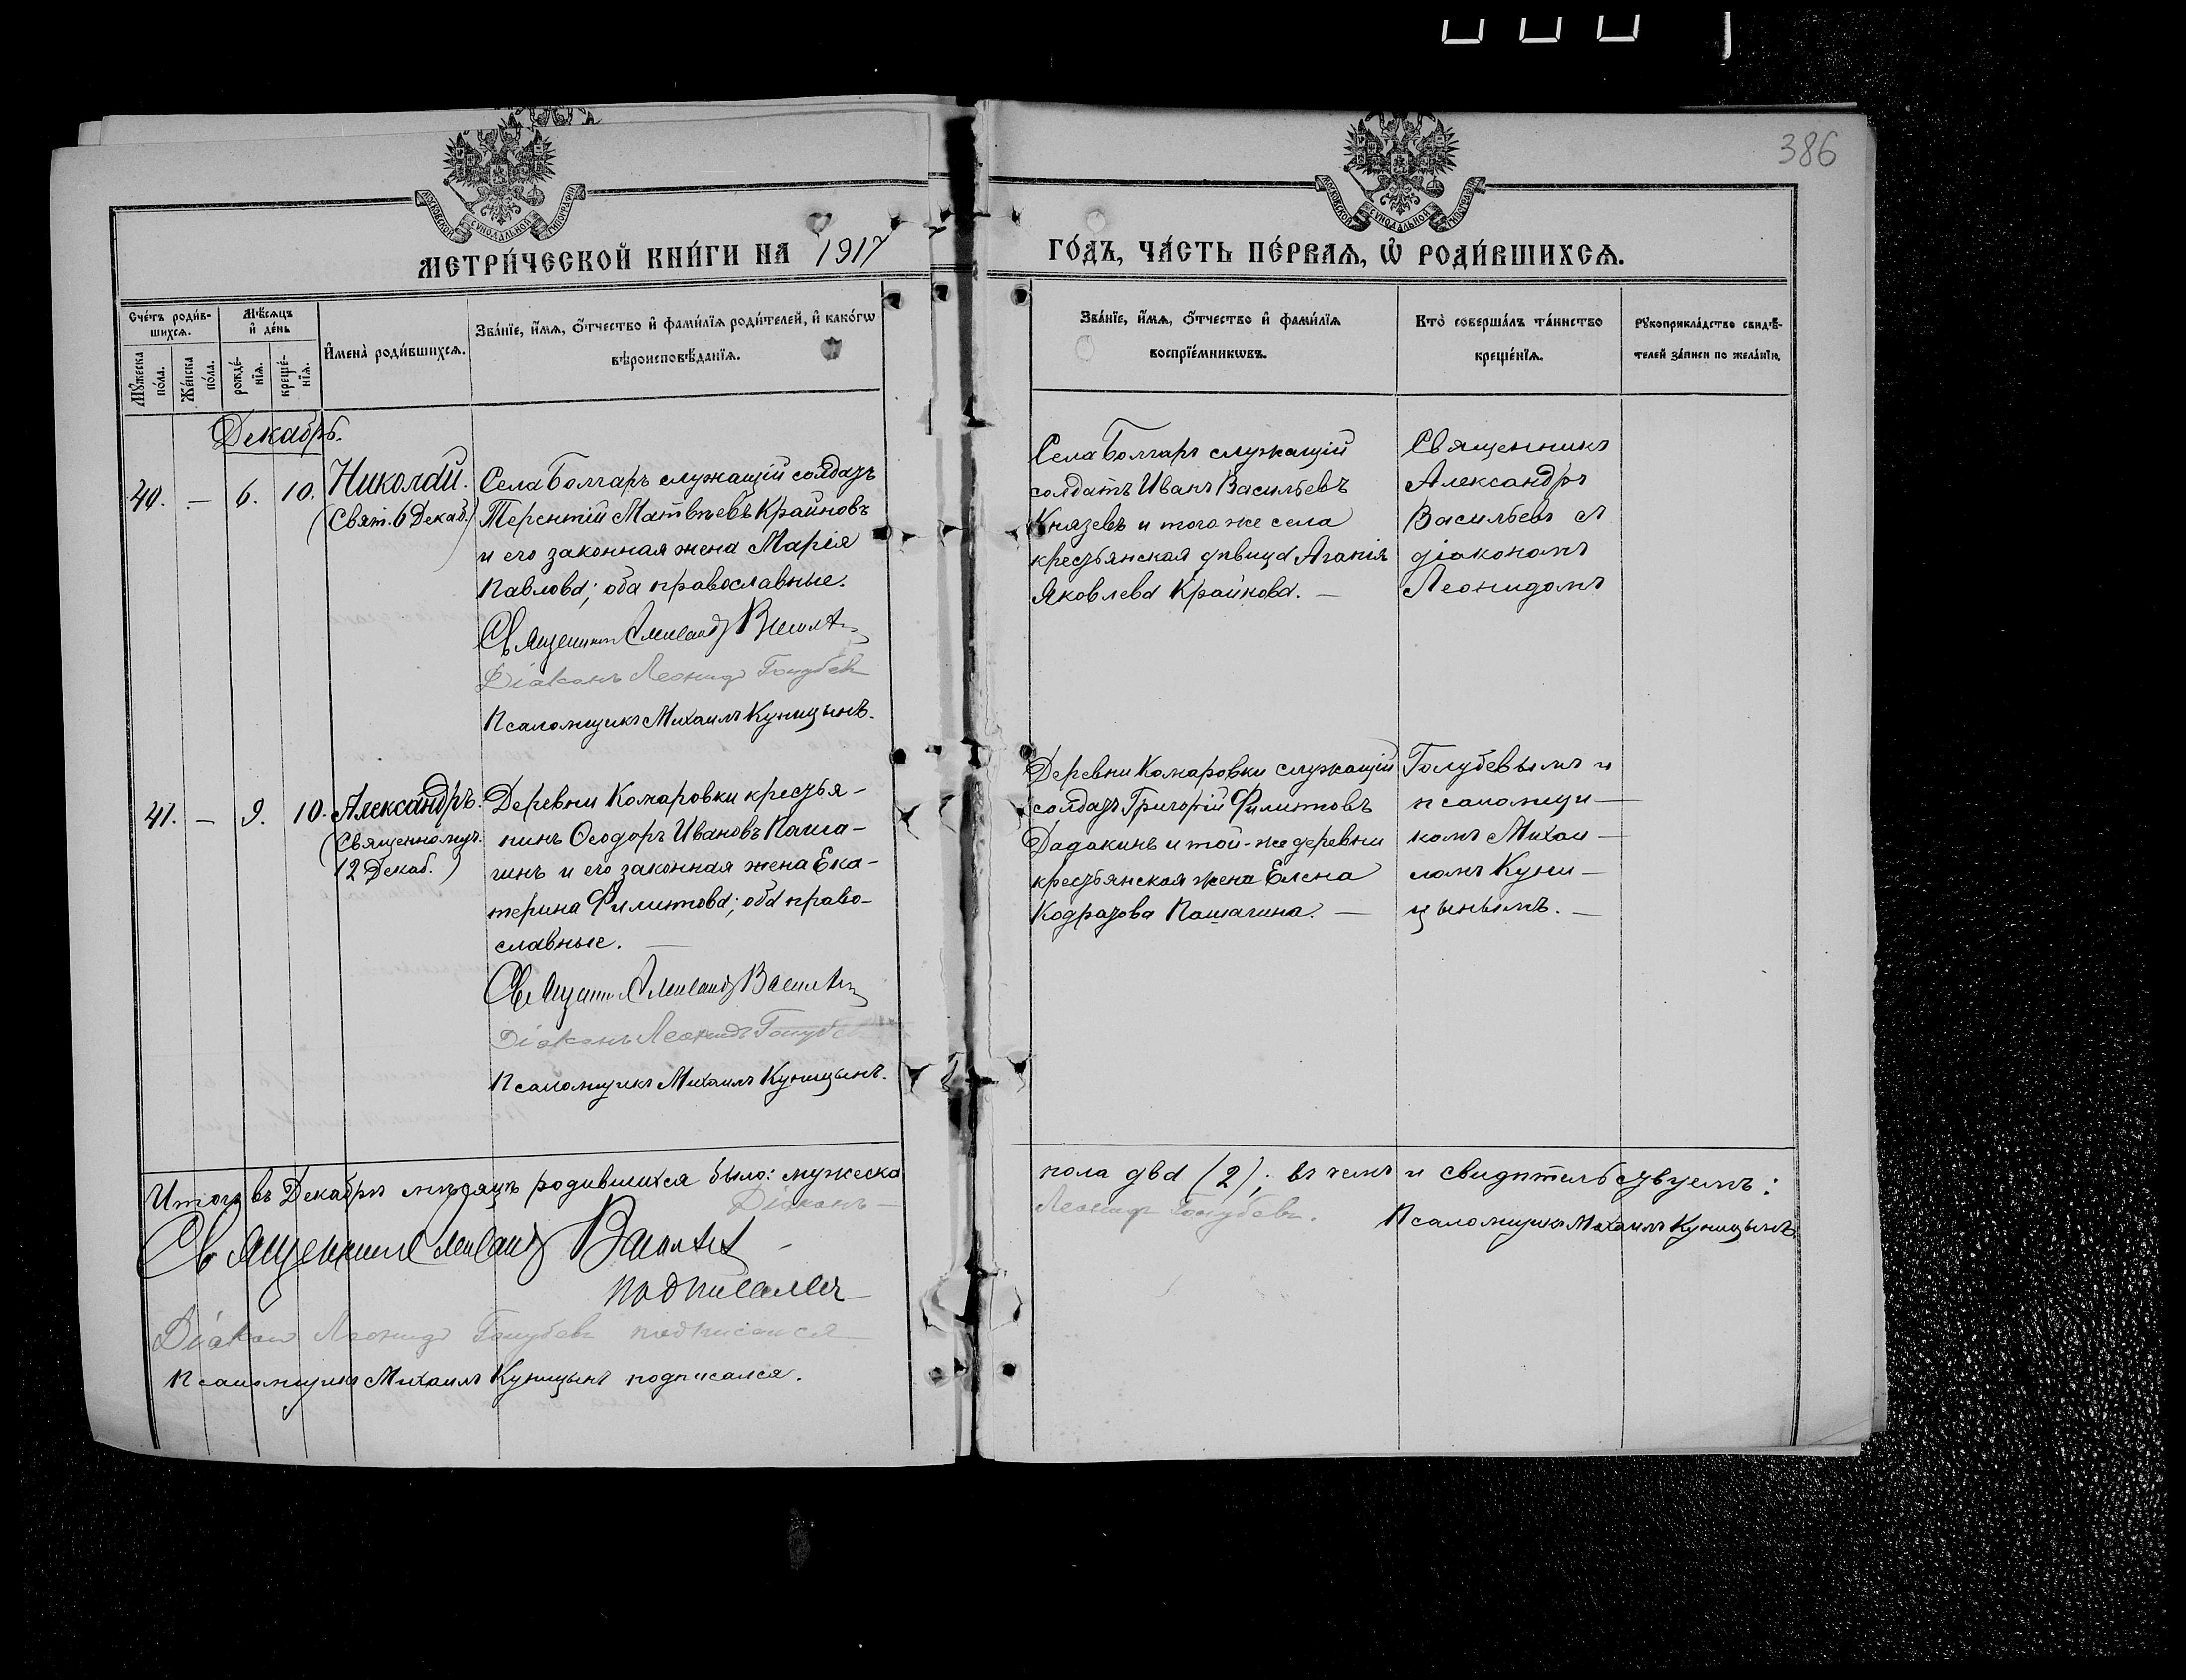 386
МОСКОВСКОЙ СѴНОДАЛЬНОЙ ТИПОГРАФІИ
МОСКОВСКОЙ СѴНОДАЛЬНОЙ ТИПОГРАФІИ
МЕТРИ́ЧЕСКОЙ КНИ́ГИ НА 1917
ГО́ДЪ, ЧА́СТЬ ПЕ́РВАѦ, Ѡ҆ РОДИ́ВШИХСѦ.
Сче́тъ роди́в-
шихсѧ.
Мѣ́сѧцъ
и҆ де́нь
Мꙋ́жеска
по́ла.
Же́нска
по́ла.
рожде́-
нїѧ.
креще́-
нїѧ.
И҆мена̀ роди́вшихсѧ.
Зва́нїе, и҆́мѧ, ѻ҆́тчество и҆ фами́лїѧ роди́телей, и҆ како́гѡ
вѣроисповѣ́данїѧ.
Зва́нїе, и҆́мѧ, ѻ҆́тчество и҆ фами́лїѧ
воспрїе́мникѡвъ.
Кто̀ соверша́лъ та́инство
креще́нїѧ.
Рꙋкоприкла́дство свидѣ́-
телей за́писи по жела́нїю.
Декабрь.
40. — 6. 10. Николай.
(Свят. 6 Декаб.)
Села Болгаръ служащій солдатъ
Терентій Матвѣевъ Крайновъ
и его законная жена Марія
Павлова; оба православные.
Священникъ Александръ Васильевъ
Діаконъ Леонидъ Голубевъ
Псаломщикъ Михаилъ Куницынъ.
Села Болгаръ служащій
солдатъ Иванъ Васильевъ
Князевъ и того же села
крестьянская дѣвица Агапія
Яковлева Крайнова. —
Священникъ
Александръ
Васильевъ съ
діакономъ
Леонидомъ
41. — 9. 10. Александръ.
(Священномуч.
12 Декаб.)
Деревни Комаровки крестья-
нинъ Ѳеодоръ Ивановъ Паша-
гинъ и его законная жена Ека-
терина Филиппова; оба право-
славные. —
Священникъ Александръ Васильевъ
Діаконъ Леонидъ Голубевъ
Псаломщикъ Михаилъ Куницынъ.
Деревни Комаровки служащій
солдатъ Григорій Филипповъ
Дадакинъ и той-же деревни
крестьянская жена Елена
Кодратова Пашагина. —
Голубевымъ и
псаломщи-
комъ Михаи-
ломъ Куни-
цынымъ. —
Итого въ Декабрѣ мѣсяцѣ родившихся было: мужеска
пола два (2); въ чемъ и свидѣтельствуемъ:
Священникъ Александръ Васильевъ
Діаконъ —
Леонидъ Голубевъ.
Псаломщикъ Михаилъ Куницынъ.
подписался
Діаконъ Леонидъ Голубевъ подписался
Псаломщикъ Михаилъ Куницынъ подписался.